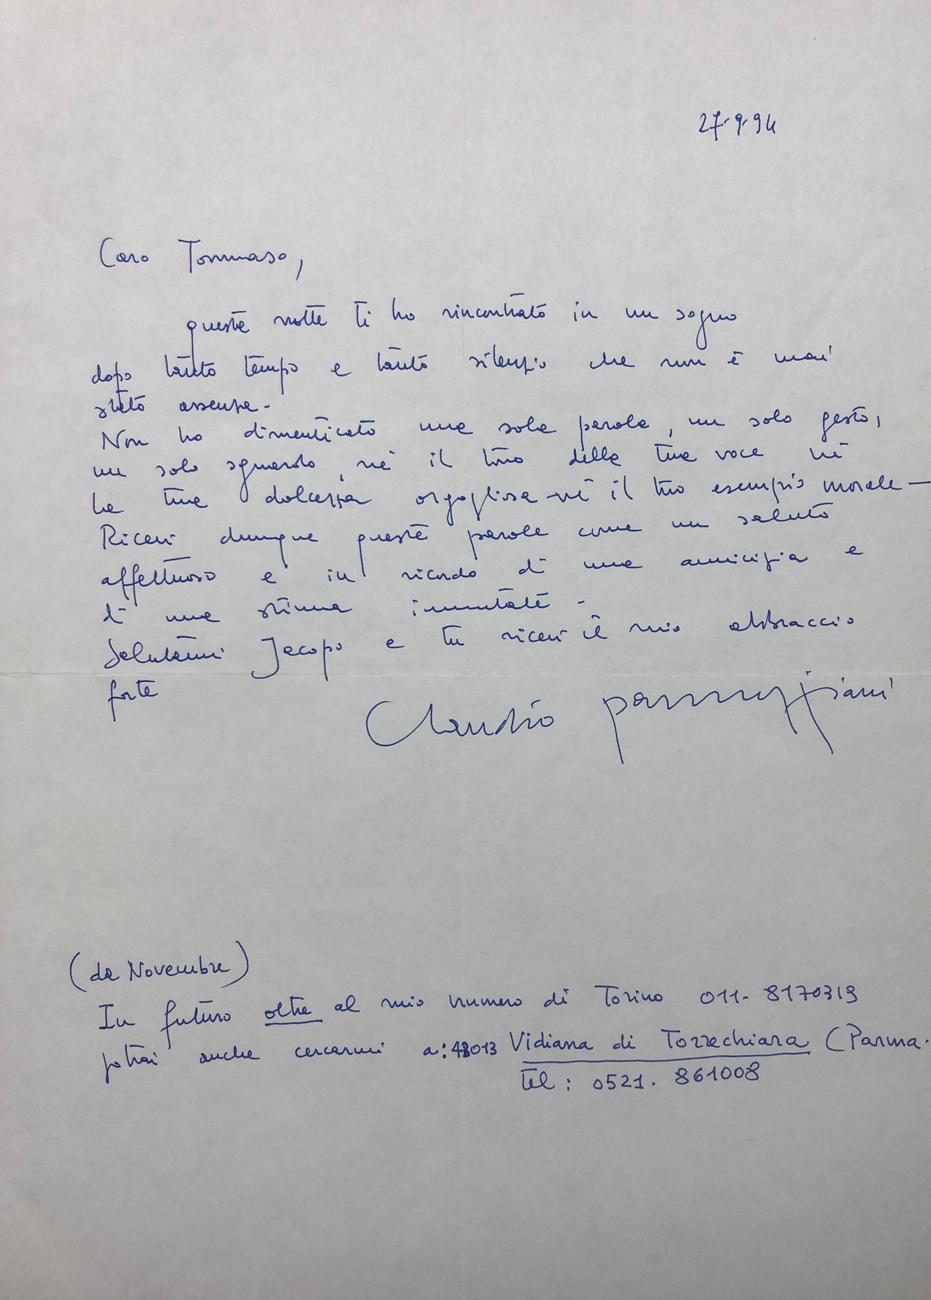 27.9.94
Caro Tommaso,
questa notte ti ho rincontrato in un sogno
dopo tanto tempo e tanto silenzio che non è mai
stato assenza-
Non ho dimenticato una sola parola, un solo gesto,
un solo sguardo, né il tono della tua voce né
la tua dolcezza orgogliosa né il tuo esempio morale-
Ricevi dunque queste parole come un saluto
affettuoso e in ricordo di una amicizia e
di una stima immutata-
Salutami Jacopo e tu ricevi il mio abbraccio
forte
Claudio Parmiggiani
(da Novembre)
In futuro oltre al mio numero di Torino 011-8170319
potrai anche cercarmi a: 43013 Vidiana di Torrechiara (Parma.
Tel: 0521. 861008